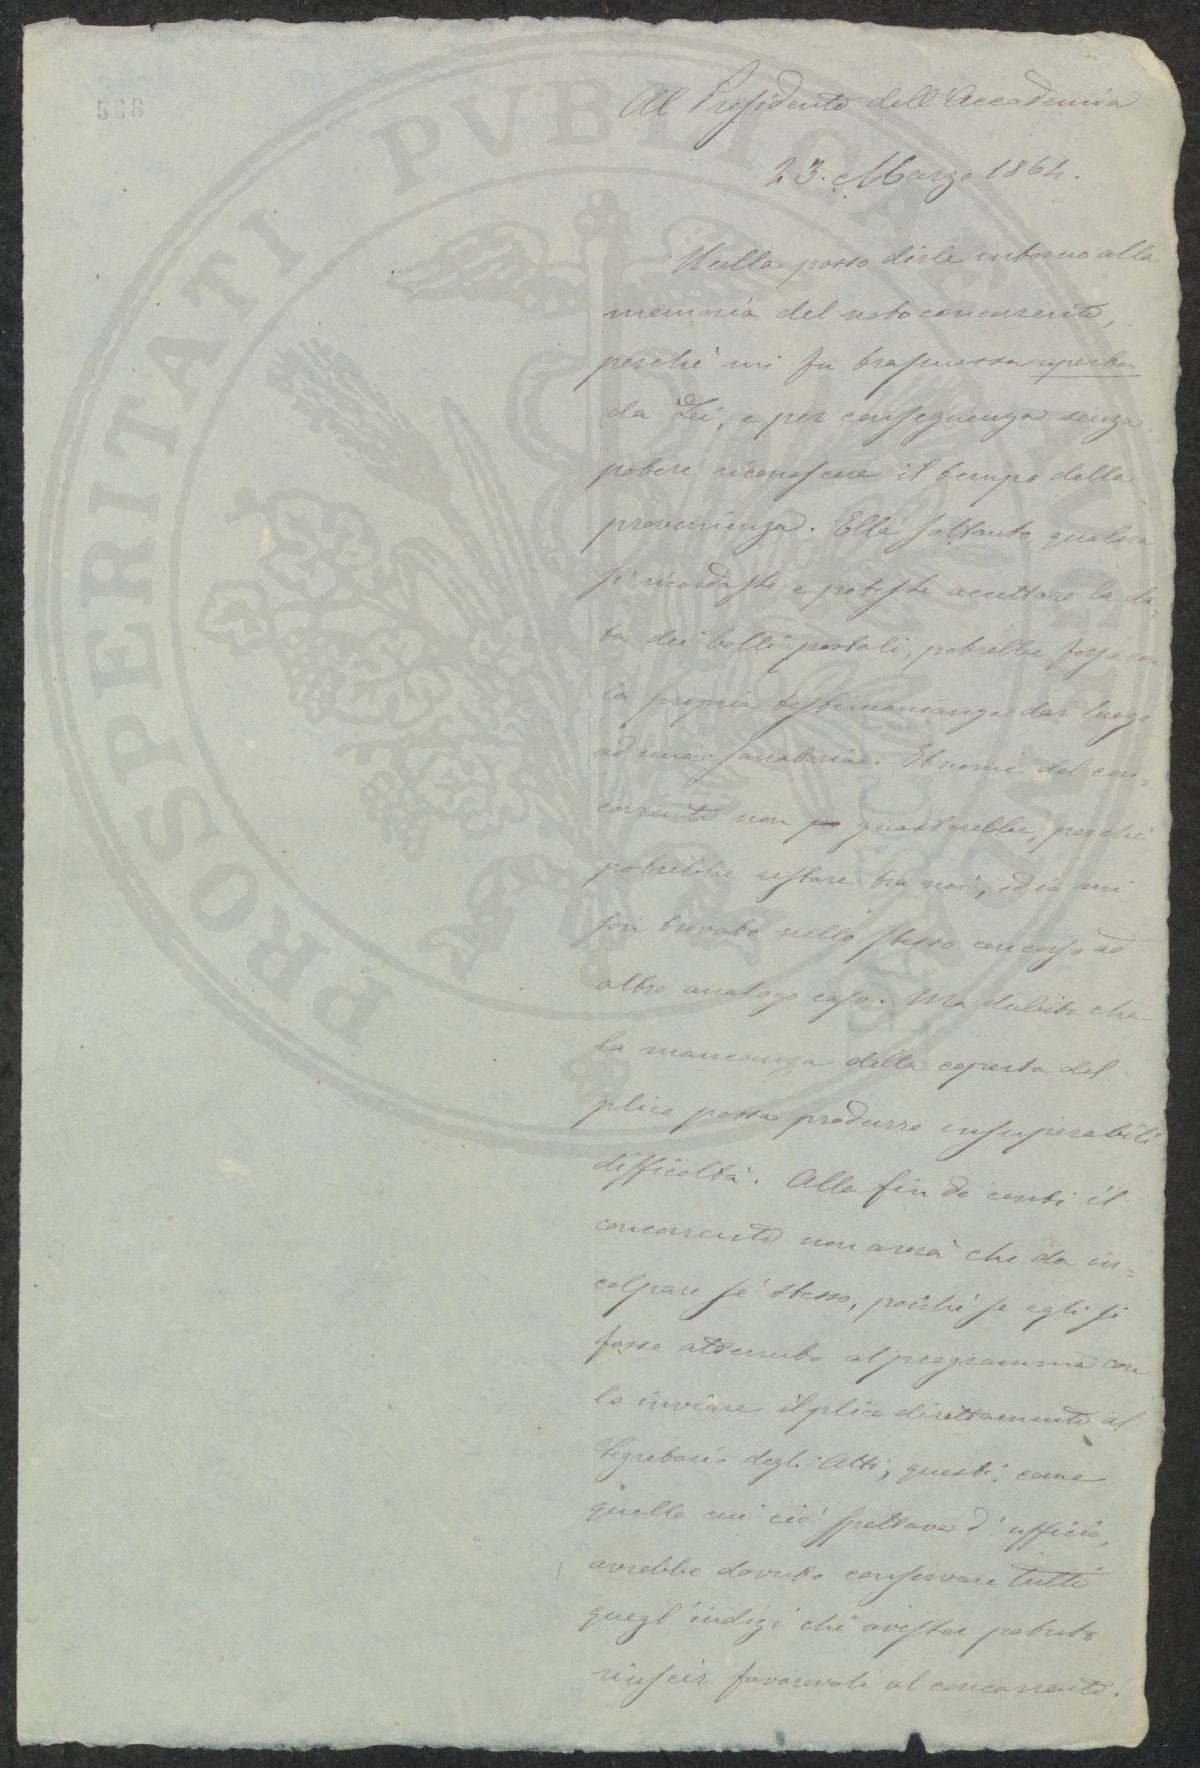 568
Al Presidente dell'Accademia
23. Marzo 1864.
Nulla posso dirle intorno alla
memoria del noto concorrente,
perchè mi fu trasmessa aperta
da Lei, e per conseguenza senza
potere riconoscere il tempo della
provenienza. Ella soltanto, qualora
si ricordasse e potesse accettare la da=
ta dei bolli postali, potrebbe forse con
la propria testimonianza dar luogo
ad una sanatoria. Il nome del con=
corrente non guasterebbe, perchè
potrebbe restare tra noi, ed io mi
son trovato nello stesso concorso ad
altro analogo caso. Ma dubito che
la mancanza della coperta del
plico possa produrre insuperabili
difficoltà. Alla fin de' conti il
concorrente non avrà che da in=
colpare sè stesso, poichè se egli si
fosse attenuto al programma con
lo inviare il plico direttamente al
Segretario degli Atti, questi, come
quello cui ciò spettava d'ufficio,
avrebbe dovuto conservare tutti
quegl'indizi che avesser potuto
riuscir favorevoli al concorrente.
PROSPERITATI PVBLICAE AVGENDAE